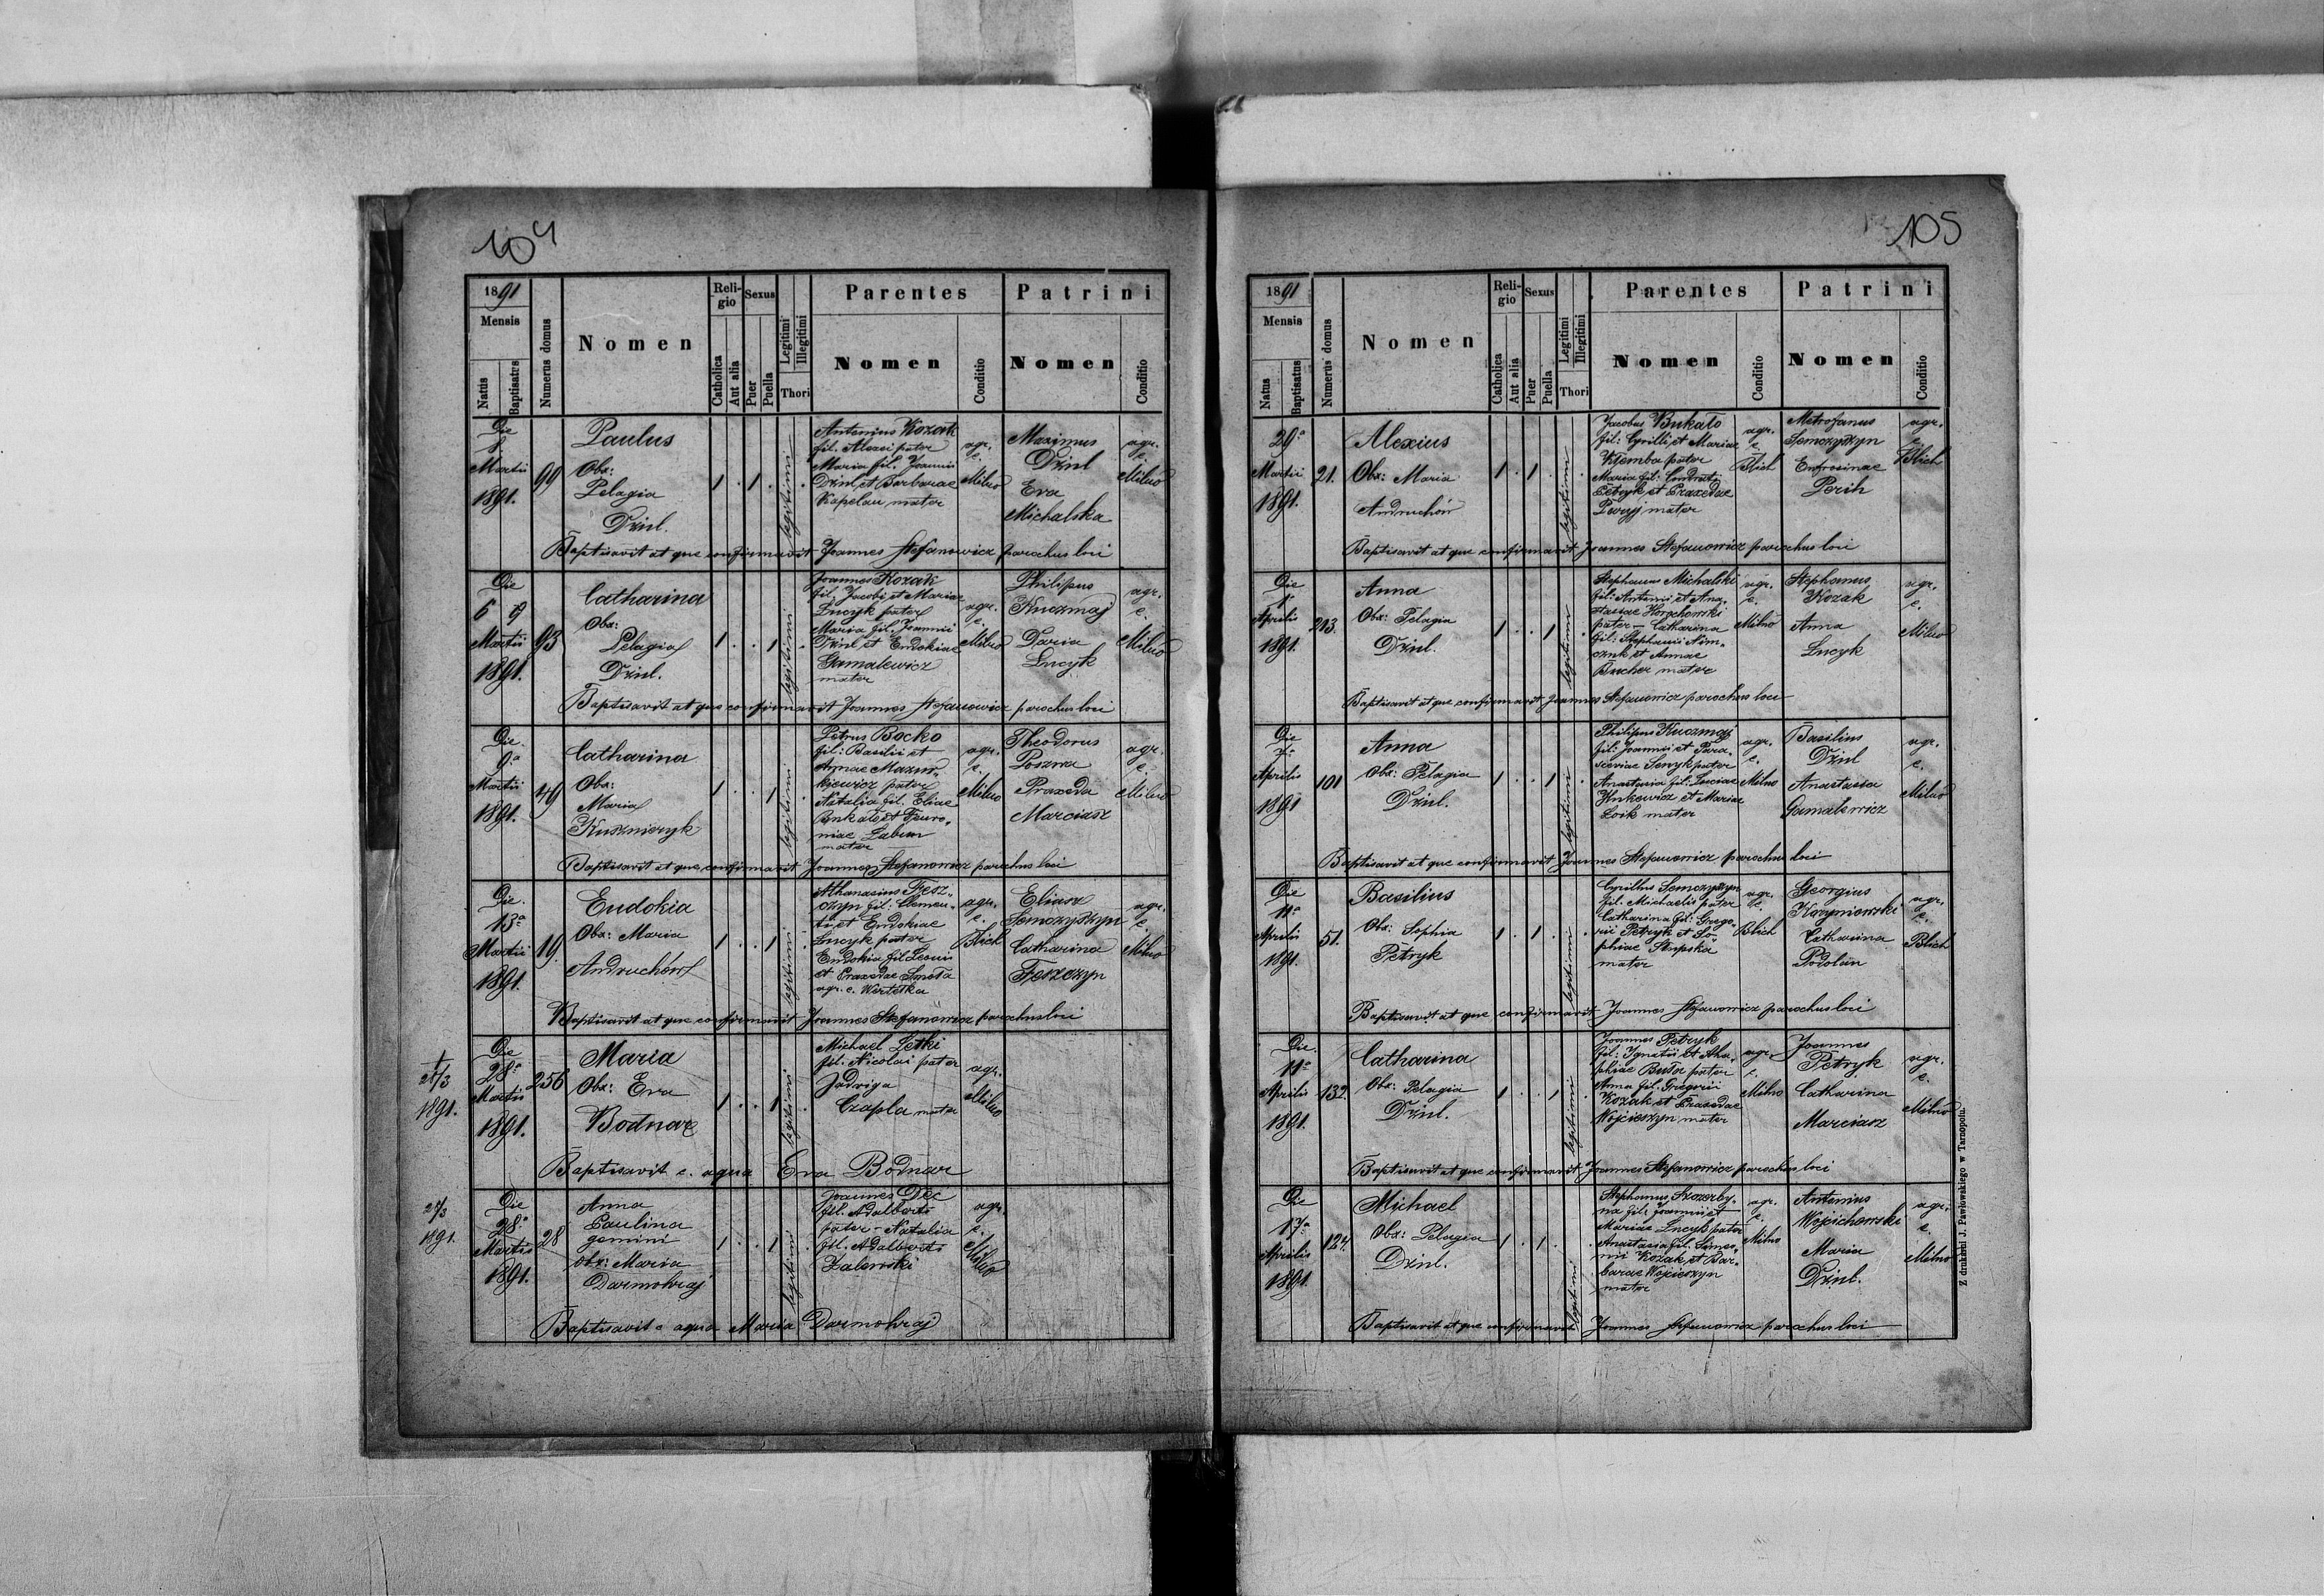 104
1891
Mensis
Natus
Baptisatus
Numerus domus
Nomen
Religio
Catholica
Aut alia
Sexus
Puer
Puella
Legitimi
Illegitimi
Thori
Parentes
Nomen
Conditio
Patrini
Nomen
Conditio
Die
8.
Martii
1891.
99
Paulus
Obx:
Pelagia
Dziul.
1 . 1 . .
legitimi
Antonius Kozak
fil. Alexii pater
Maria fil. Joannis
Dziul et Barbarae
Kapelan mater
agr.
c.
Milno
Maximus
Dziul
Eva
Michalska
agr.
c.
Milno
Baptisavit at que confirmavit Joannes Stefanowicz parochus loci
Die
6 9
Martii
1891.
93
Catharina
Obx:
Pelagia
Dziul.
1 . . 1 .
legitimi
Joannes Kozak
fil. Jacobi et Mariae
Lucyk pater
Maria fil. Joannis
Dziul et Eudokiae
Gamalewicz
mater
agr.
c.
Milno
Philipus
Kuczmaj
Daria
Lucyk
agr.
c.
Milno
Baptisavit at que confirmavit Joannes Stefanowicz parochus loci
Die
9a
Martii
1891.
49
Catharina
Obx:
Maria
Kusznieryk
1 . . 1 .
legitimi
Petrus Bocko
fil: Basilii et
Annae Mazur-
kiewicz pater
Natalia fil. Eliae
Bukato et Feuro-
niae Labun
mater
agr.
c.
Milno
Theodorus
Poszwa
Praxeda
Marciasz
agr.
c.
Milno
Baptisavit at que confirmavit Joannes Stefanowicz parochus loci
Die
13a
Martii
1891.
19.
Eudokia
Obx: Maria
Andruchów
1 . . 1 .
legitimi
Athanasius Fesz-
czyn fil: Clemen-
tii et Eudokiae
Lucyk pater
Eudokia fil Leonis
et Praxedae Smota
agr. c. Wertelka
agr.
c.
Blich
Eliasz
Semczyszyn
Catharina
Feszczyn
agr.
c.
Milno
Baptisavit at que confirmavit Joannes Stefanowicz parochus loci
1891.
Die
28a
Martii
1891.
256
Maria
Obx: Eva
Bodnar
1 . . 1 .
legitimi
Michael Letki
fil: Nicolai pater
Jadwiga
Czapla mater
agr.
Milno
Baptisavit e. aqua Eva Bodnar
27/3
1891.
Die
28a
Martii
1891.
28
Anna
Paulina
gemini
obx: Maria
Darmohraj
1 . . 1 .
legitimi
Joannes Deć
fil. Adalberti
pater - Natalia
fil. Adalberti
Zalewski
agr.
c.
Milno
Baptisavit e aqua Maria Darmohraj
105
1891
Mensis
Natus
Baptisatus
Numerus domus
Nomen
Religio
Catholica
Aut alia
Sexus
Puer
Puella
Legitimi
Illegitimi
Thori
Parentes
Nomen
Conditio
Patrini
Nomen
Conditio
29a
Martii
1891.
21.
Alexius
Obx: Maria
Andruchów
1 . 1 . .
legitimi
Jacobus Bukato
fil: Cyrilli et Mariae
pater
Maria fil: Condrati
Petryk et Praxedae
mater
agr.
c.
Blich
Metrofanus
Semczyszyn
Eufrosinae
Perih
agr.
c.
Blich
Baptisavit at que confirmavit Joannes Stefanowicz parochus loci
Die
1a
Aprilis
1891.
213.
Anna
Obx: Pelagia
Dziul.
1 . . 1 .
legitimi
Stephanus Michalski
fil: Antonii et Ana-
stasiae Horochowski
pater - Catharina
fil: Stephanii Nim-
czuk et Annae
Bucher mater
agr.
c.
Milno
Stephanus
Kozak
Anna
Lucyk
agr.
c.
Milno
Baptisavit at que confirmavit Joannes Stefanowicz parochus loci
Die
7a
Aprilis
1891
101
Anna
Obx: Pelagia
Dziul.
1 . . 1 .
legitimi
Philipus Kuczmaj
fil: Joannis et Para-
sceviae Senyk pater
Anastasia fil: Luciae
Hukewicz et Mariae
Loik mater
agr.
c.
Milno
Basilius
Dziul
Anastasia
Gamalewicz
agr.
c.
Milno
Baptisavit at que confirmavit Joannes Stefanowicz parochus loci
Die
11a
Aprilis
1891.
51.
Basilius
Obx: Sophia
Petryk
1 . 1 . .
legitimi
Cyrillus Semczyszyn
fil. Michaelis pater
Catharina fil: Grego-
rii Petryk et So-
phiae Stupska
mater
agr.
c.
Blich
Georgius
Korzyniowski
Catharina
Podolan
agr.
c.
Blich
Baptisavit at que confirmavit Joannes Stefanowicz parochus loci
Die
11a
Aprilis
1891.
132.
Catharina
Obx: Pelagia
Dziul.
1 . . 1 .
legitimi
Joannes Petryk
fil: Ignatii et Aha-
phiae Buta pater
Anna fil. Gregorii
Kozak et Praxedae
Wojcieszyn mater
agr.
c.
Milno
Joannes
Petryk
Catharina
Marciasz
agr.
c.
Milno
Baptisavit at que confirmavit Joannes Stefanowicz parochus loci
Die
17a
Aprilis
1891.
124.
Michael
Obx: Pelagia
Dziul.
1 . 1 . .
legitimi
Stephanus Szczerby-
na fil: Joannis et
Mariae Lucyk pater
Anastasia fil. Simeo-
nis Kozak et Bar-
barae Wojcieszyn
mater
agr.
c.
Milno
Antonius
Wojcichowski
Maria
Dziul.
agr.
c.
Milno
Baptisavit at que confirmavit Joannes Stefanowicz parochus loci
Z drukarni J. Pawłowskiego w Tarnopolu.